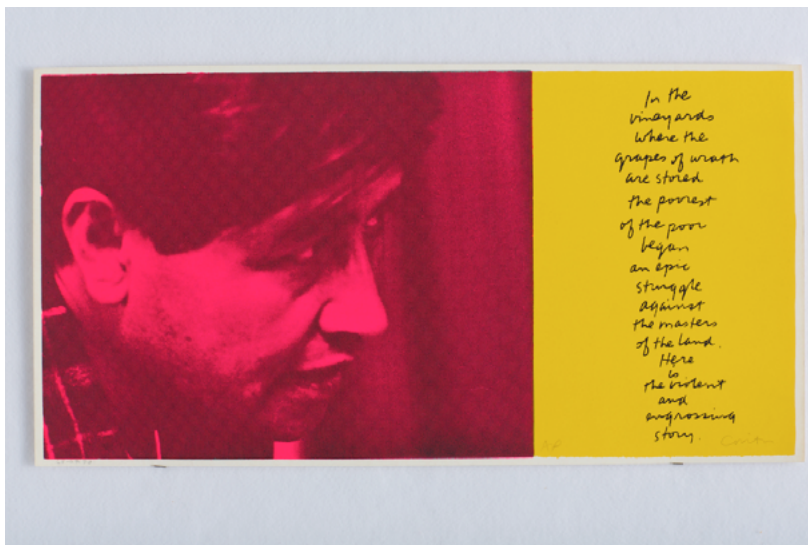 In the
vineyards
where the
grapes of wrath
are stored
the poorest
of the poor
began
an epic
sturggle
against
the masters
of the land.
Here
is
the violent
and
engrossing
story.